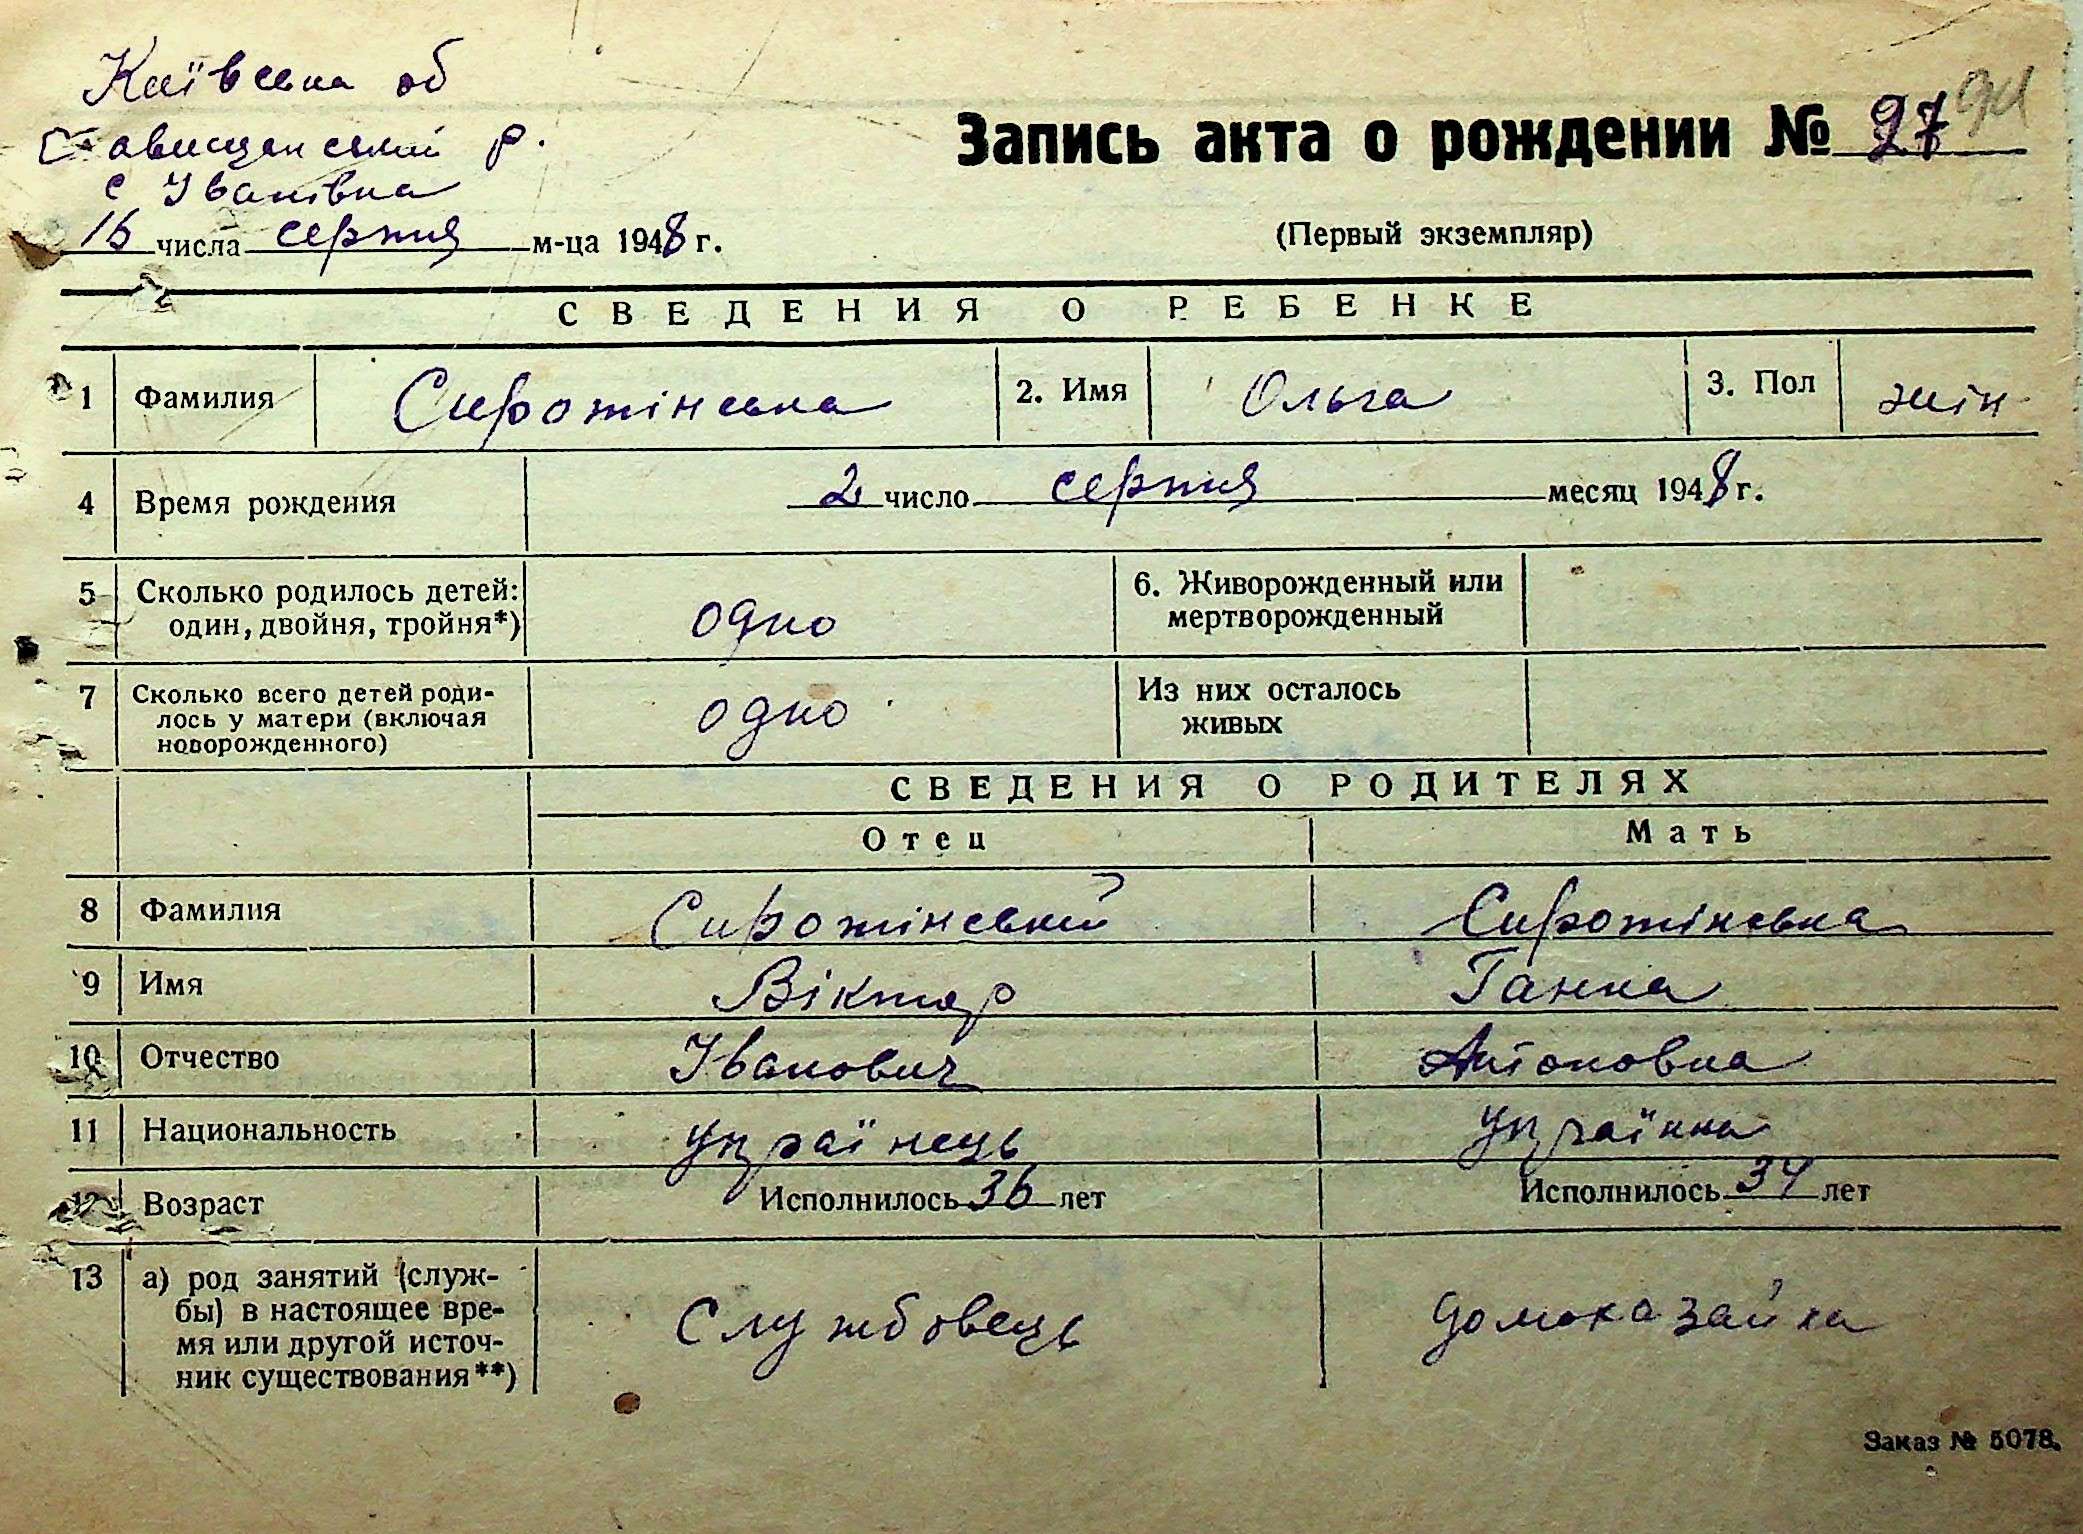 Київська об
Ставищанський р.
с Іванівка
16 числа серпня м-ца 1948 г.
Запись акта о рождении № 27
(Первый экземпляр)
СВЕДЕНИЯ О РЕБЕНКЕ
1 Фамилия Сиротінська 2. Имя Ольга 3. Пол жін
4 Время рождения 2 число серпня месяц 1948 г.
5 Сколько родилось детей: один, двойня, тройня*) одно 6. Живорожденный или мертворожденный
7 Сколько всего детей родилось у матери (включая новорожденного) одно Из них осталось живых
СВЕДЕНИЯ О РОДИТЕЛЯХ
Отец Мать
8 Фамилия Сиротінський Сиротінська
9 Имя Віктор Ганна
10 Отчество Іванович Антоновна
11 Национальность Українець Українка
12 Возраст Исполнилось 36 лет Исполнилось 34 лет
13 а) род занятий (службы) в настоящее время или другой источник существования**) Службовець домохазайка
Заказ № 5078.